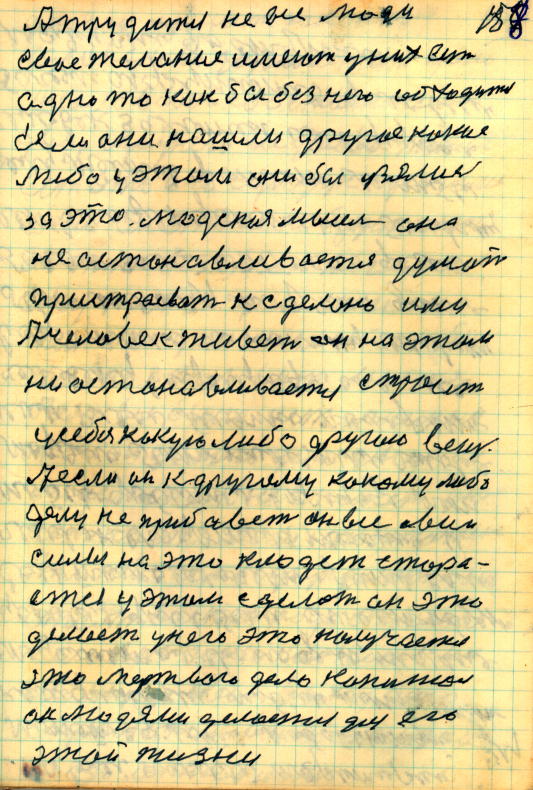 А трудится не все люди 188
свое желания имеют у них сут
одно то как бы без него обходится
Если они нашли другое какое
либо у этом они бы взялися
за это. людская мысл она
не останавливается думат
пристраеват к сделоно ими
А человек живет он на этом
ни останавливается строит
у себя какую либо другою вещ.
А если он к другому какому либо
делу не прибавет он все свои
силы на это кладет стора-
ется у этом сделат он это
делает у него это получается
это мертвого дело капитал
он людями делается для его
этой жизни